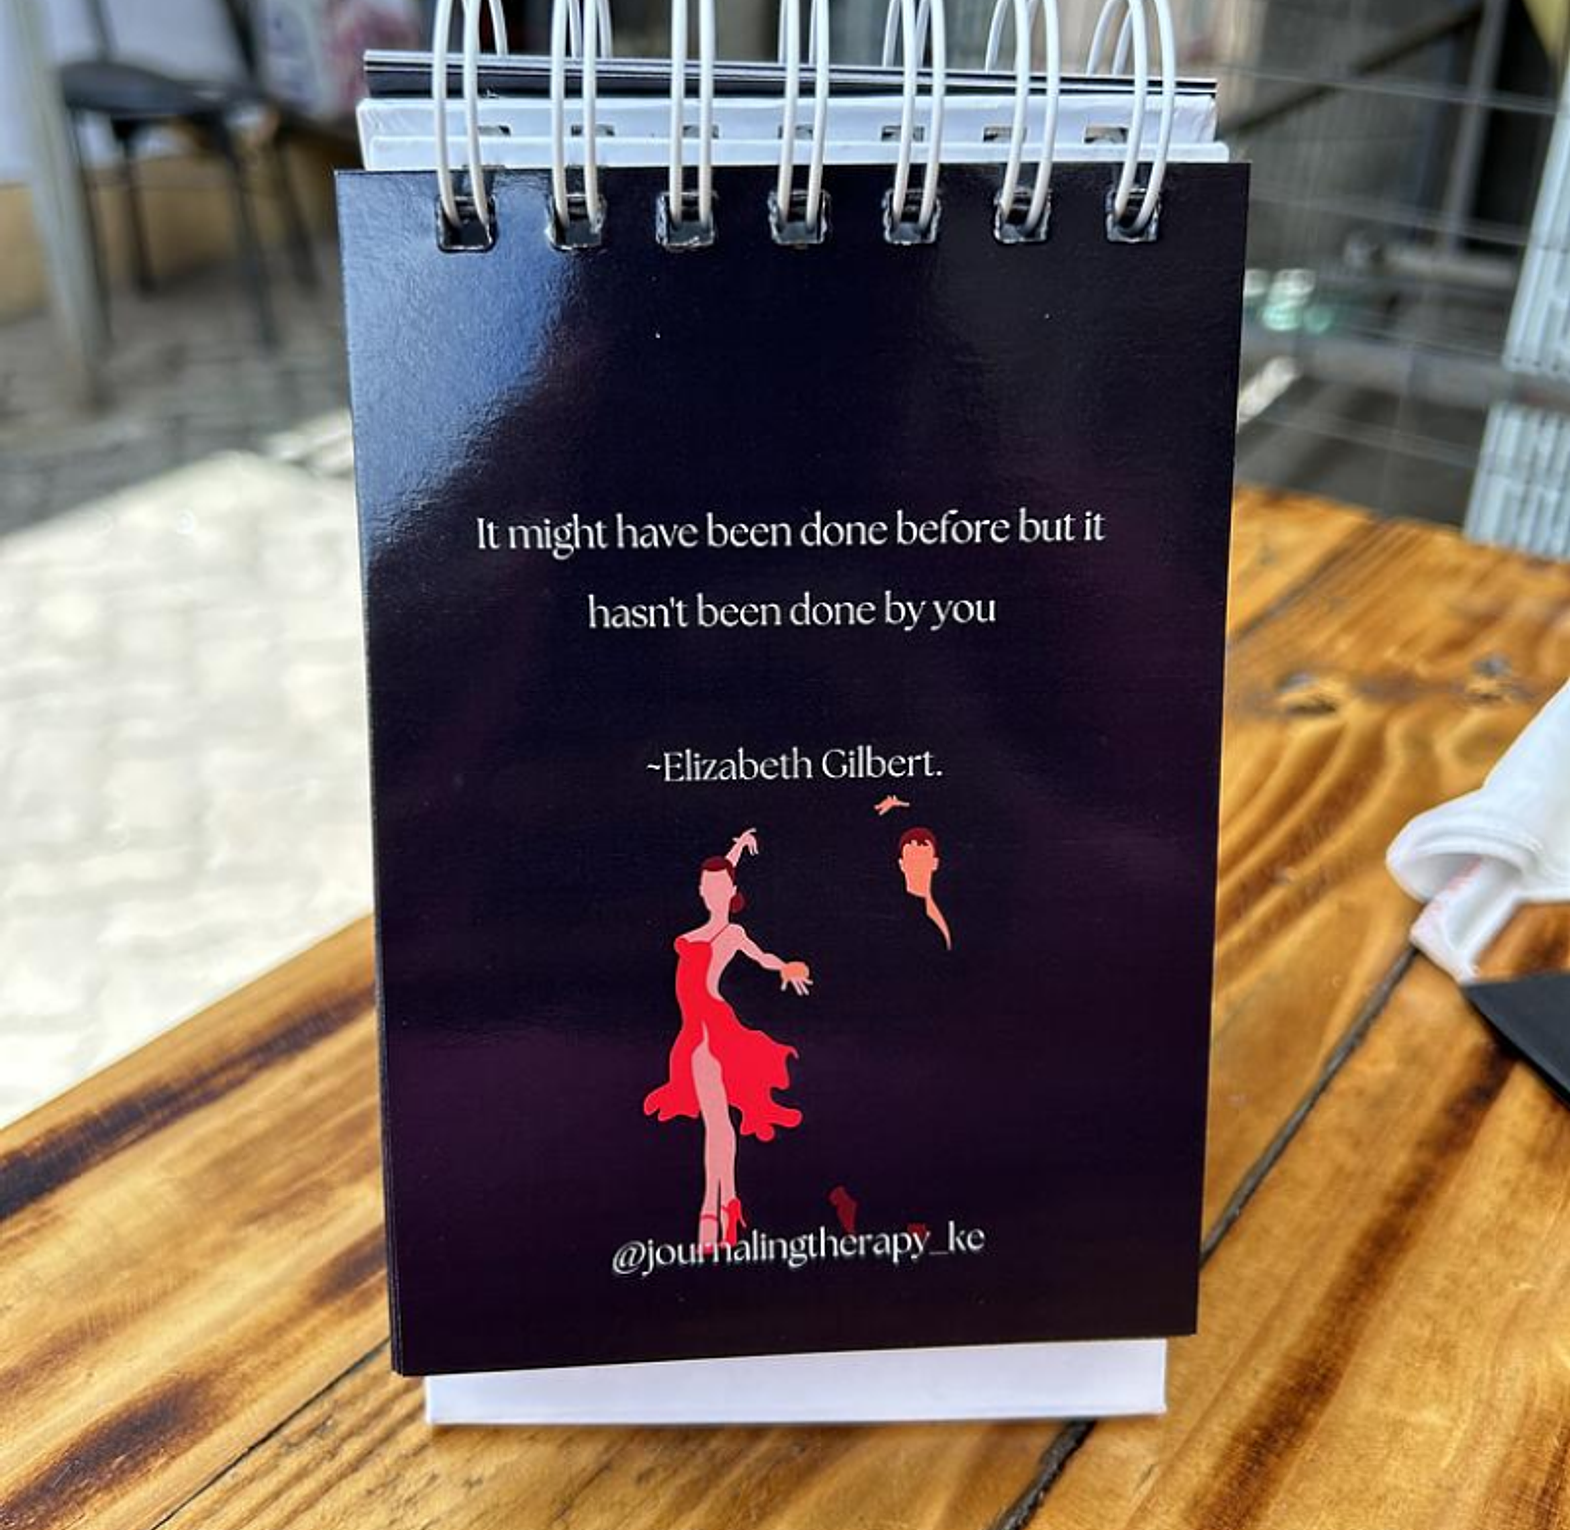 It might have been done before but it
hasn't been done by you
~Elizabeth Gilbert.
@journalingtherapy_ke